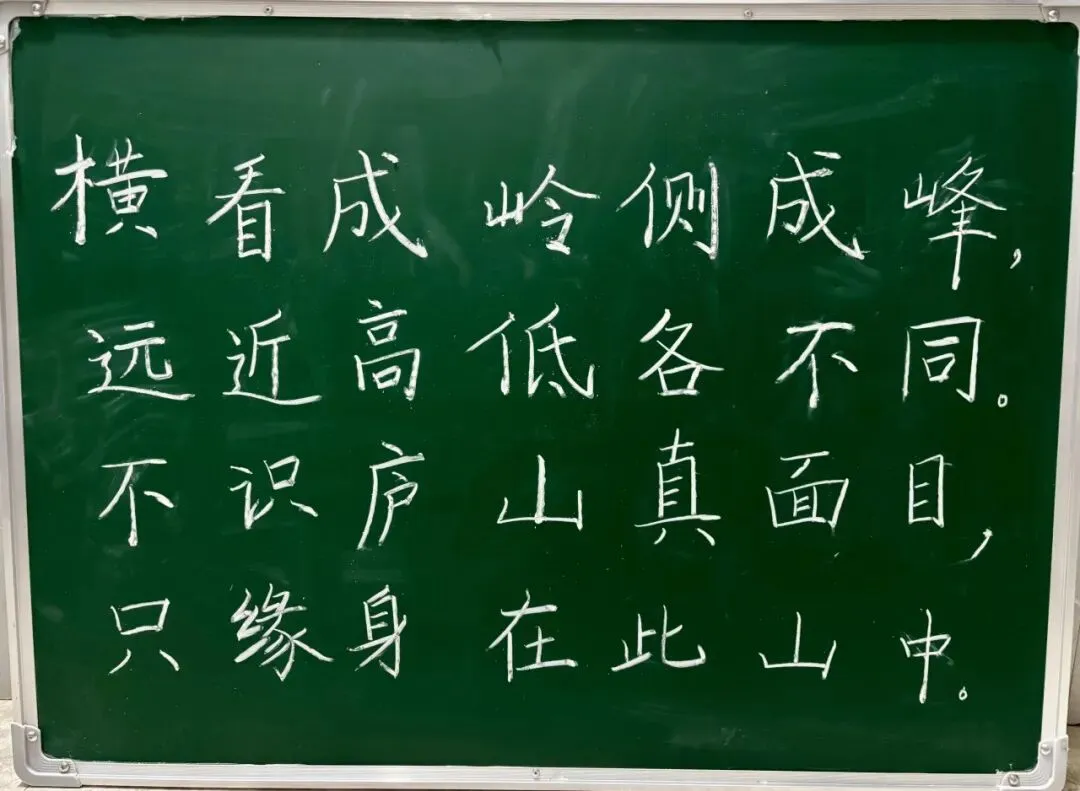 横看成岭侧成峰,
远近高低各不同。
不识庐山真面目,
只缘身在此山中。